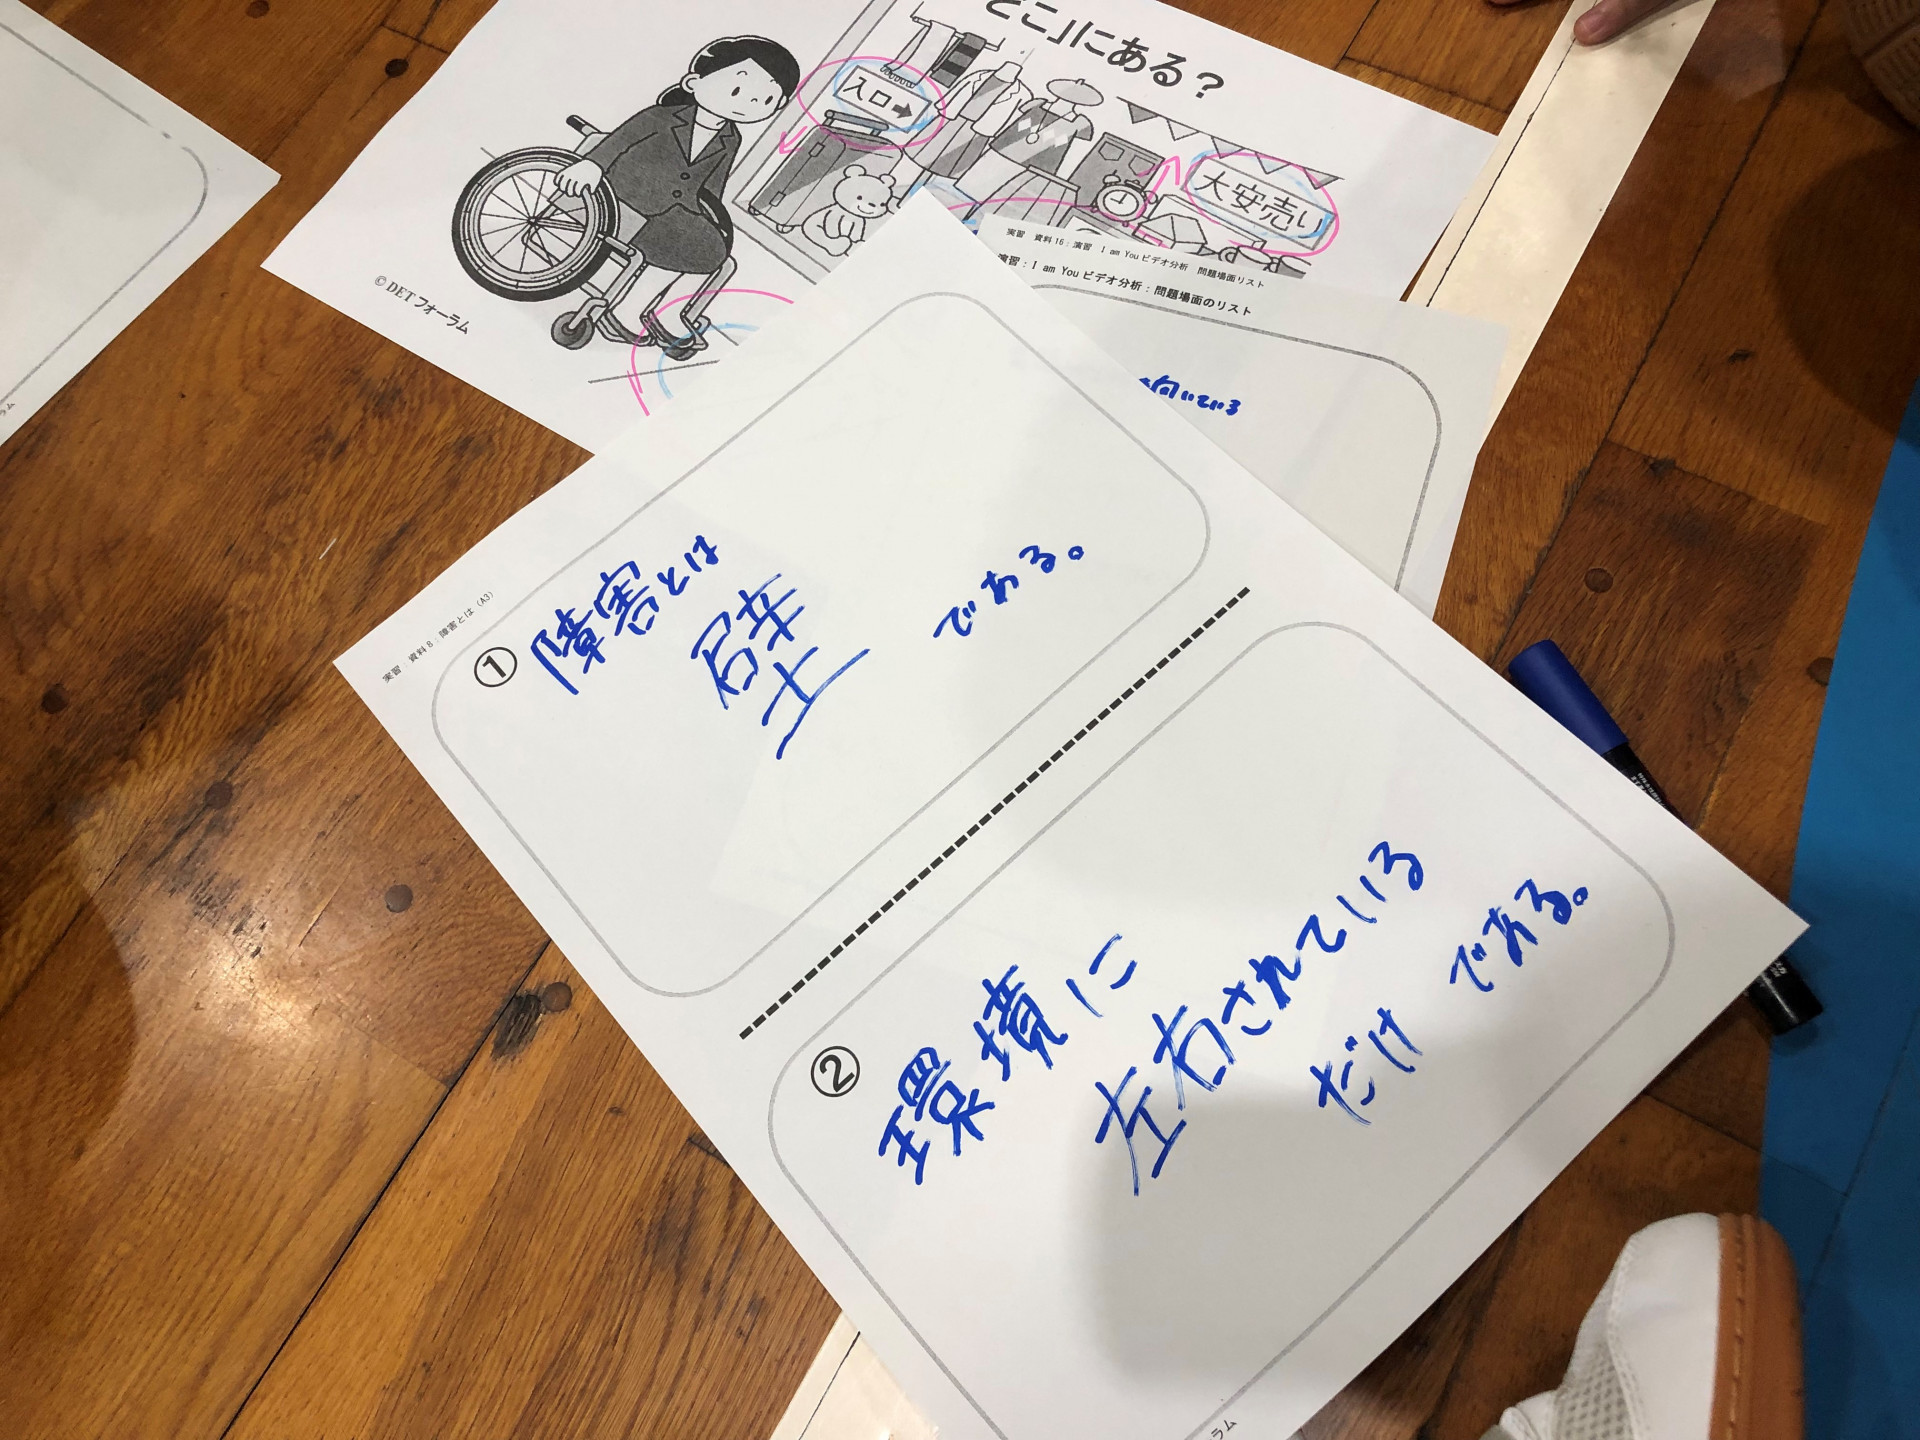 どこ」にある？
入口➡
大安売り
©DETフォーラム
実習 資料16：演習 I am You ビデオ分析 問題場面リスト
演習：I am You ビデオ分析：問題場面のリスト
向いている
実習 資料8：障害とは（A3）
①
障害とは
壁
である。
②
環境に
左右されている
だけ
である。
ラム
ラム